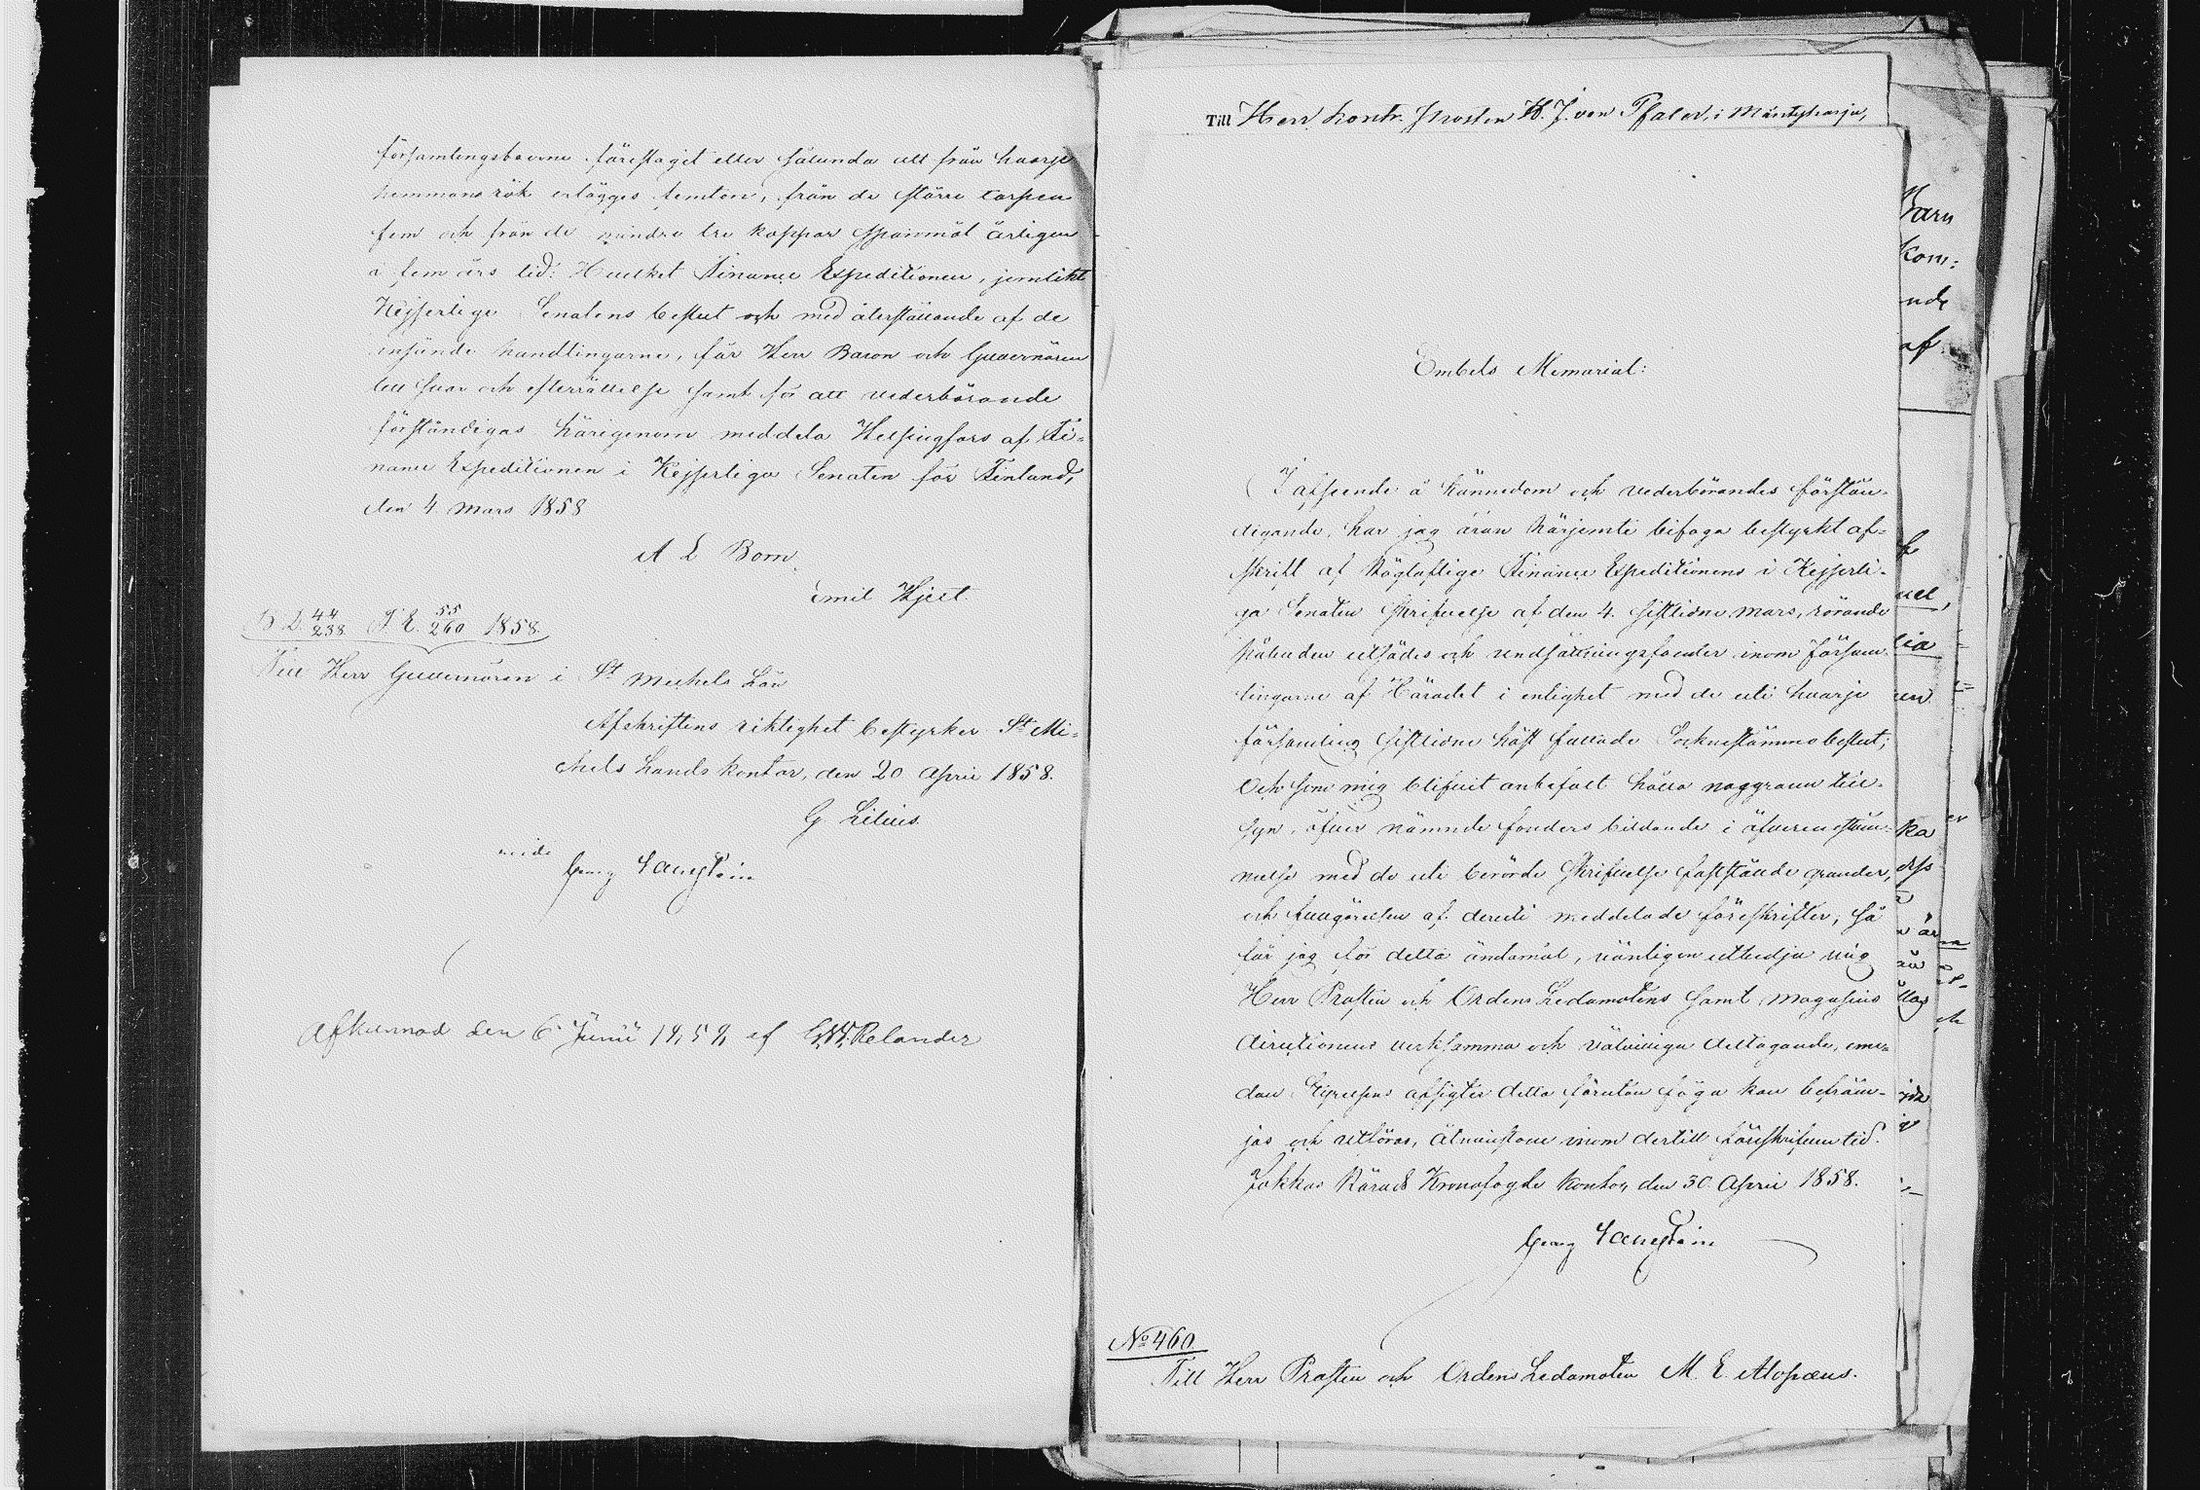 församlingsboerne föreslaget eller sålunda att från hvarje
hemmans rök erlägges femton, från de större torpen
fem och från de mindre tre kappar spanmål årligen
a fem års tid: Hvilket Finance Expeditionen, jemlikt
Kejserlige Senatens beslut och med återställande af de
insände handlingarne, får Herr Baron och Guvernören
till svar och efterrättelse samt för att vederbörande
förständigas härigenom meddela Helsingfors af Fi-
nance Expeditionen i Kejserliga Senaten för Finland,
den 4 Mars 1858
A L Born
Emil Hjelt
B. D. 44/238 F. E. 55/260 1858
Till Herr Guvernören i St Michels Län
Afskriftens riktighet bestyrker St Mi-
chels Lands kontor, den 20 April 1858.
G Lilius
vidi
Georg
Afkunnad den 6 Junii 1858 af Relander
Till Herr Kontr. Prosten H. J. von Pfaler, i Mäntyharju,
Embets Memorial:
I afseende å kännedom och vederbörandes förstän-
digande, har jag äran härjemte bifoga bestyrkt af-
skrift af Höglaflige Finance Expeditionens i Kejserli-
ga Senaten skrifvelse af den 4. sistlidne Mars, rörande
bildandet utsädes och undsättningsfonder inom försam-
lingarne af Häradet i enlighet med de uti hvarje
församling sistlidne höst fattade Socknestämmo beslut;
Och som mig blifvit anbefalt hålla noggrann till-
syn öfver nämnde fonders bildande i öfverensstäm-
melse med de uti berörde skrifvelse faststälde grunder,
och fullgörelsen af deruti meddelade föreskrifter, så
får jag för detta ändamål, vänligen utbedja mig
Herr Prosten och Ordens Ledamotens samt Magasins
directionens verksamma och välvilliga deltagande, eme-
dan Styrelsens afsigter detta förutan föga kan befräm-
jas och utföras, åtminstone inom dertill föreskrifven tid.
Jokkas Härads Kronofogde kontor, den 30 April 1858.
Georg
No 460
Till Herr Prosten och Ordens Ledamoten M. E. Alopæus.
Barn
kom:
nde
af